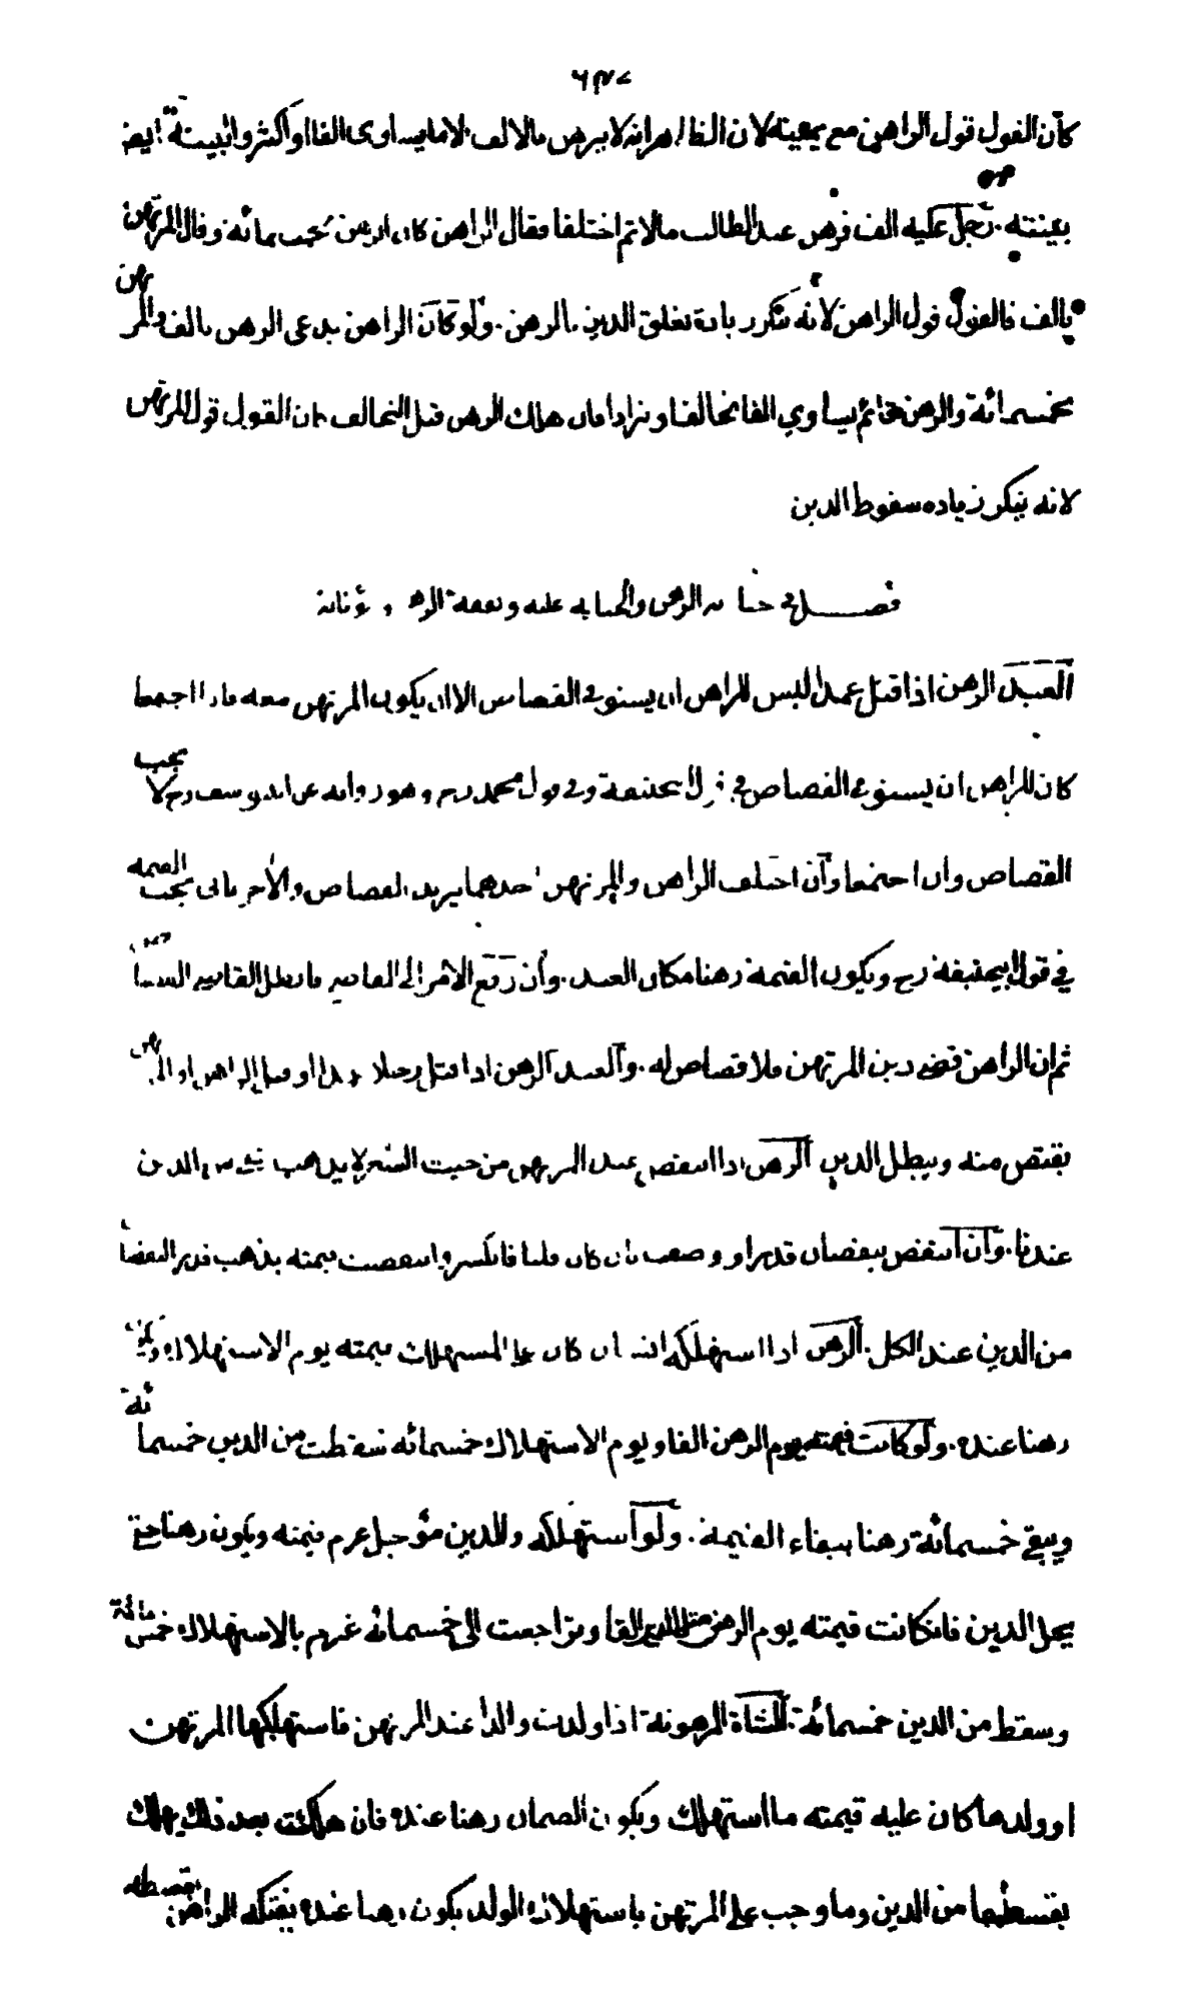 كان القول قول الراهن مع يمينه لان الظاهر انه لا يرهن بالالف الا ما يساوى الفا او اكثر والبينة ايضا
بينته. رجل عليه الف فرهن عند الطالب مالا ثم اختلفا فقال الراهن كان الرهن بخمسمائه وقال المرتهن
بالف فالقول قول الراهن لانه ينكر زيادة تعلق الدين بالرهن. ولو كان الراهن يدعى الرهن بالف والمرتهن
بخمسمائة والرهن قائم يساوي الفا تحالفا وترادا فان هلك الرهن قبل التحالف كان القول قول المرتهن
لانه ينكر زياده سقوط الدين
فصل في جناية الرهن والجناية عليه ونفقة الرهن و
العبد الرهن اذا قتل عمدا ليس للراهن ان يستوفي القصاص الا ان يكون المرتهن معه فاذا اجتمعا
كان للراهن ان يستوفى القصاص في قول ابى حنيفة وفي قول محمد رح وهو رواية عن ابى يوسف رح لا يجب
القصاص وان اجتمعا وان اختلف الراهن والمرتهن احدهما يريد القصاص والآخر يابى تجب القيمه
في قول ابيحنيفة رح ويكون القيمة رهنا مكان العبد. وان رفع الامر الى القاضي فابطل القاضي القصاص
ثم ان الراهن قضى دين المرتهن فلا قصاص له. والعبد الرهن اذا قتل رجلا عمدا او قتل الراهن او المرتهن
يقتص منه ويبطل الدين الرهن اذا انتقص عند المرتهن من حيث السعر لا يذهب شئ من الدين
عندنا. وان انتقص بنقصان قدر او وصف بان كان قلبا فانكسر وانتقصت قيمته يذهب قدر النقصان
من الدين عند الكل. الرهن اذا استهلكه انسان كان على المستهلك قيمته يوم الاستهلاك ويكون
رهنا عنده. ولو كانت قيمته يوم الرهن الفا ويوم الاستهلاك خمسمائه سقطت من الدين خمسمائه
ويبقى خمسمائة رهنا ببقاء القيمة. ولو استهلكه والدين مؤجل غرم قيمته ويكون رهنا حتى
يحل الدين فان كانت قيمته يوم الرهن مثل الدين الفا وتراجعت الى خمسمائه غرم بالاستهلاك خمسمائة
وسقط من الدين خمسمائة. الشاة المرهونة اذا ولدت ولدا عند المرتهن فاستهلكها المرتهن
او ولدها كان عليه قيمته ما استهلك ويكون الضمان رهنا عنده فان هلكت بعد ذلك يهلك
بقسطها من الدين وما وجب على المرتهن باستهلاك الولد يكون رهنا عنده يفتكه الراهن بقسطه